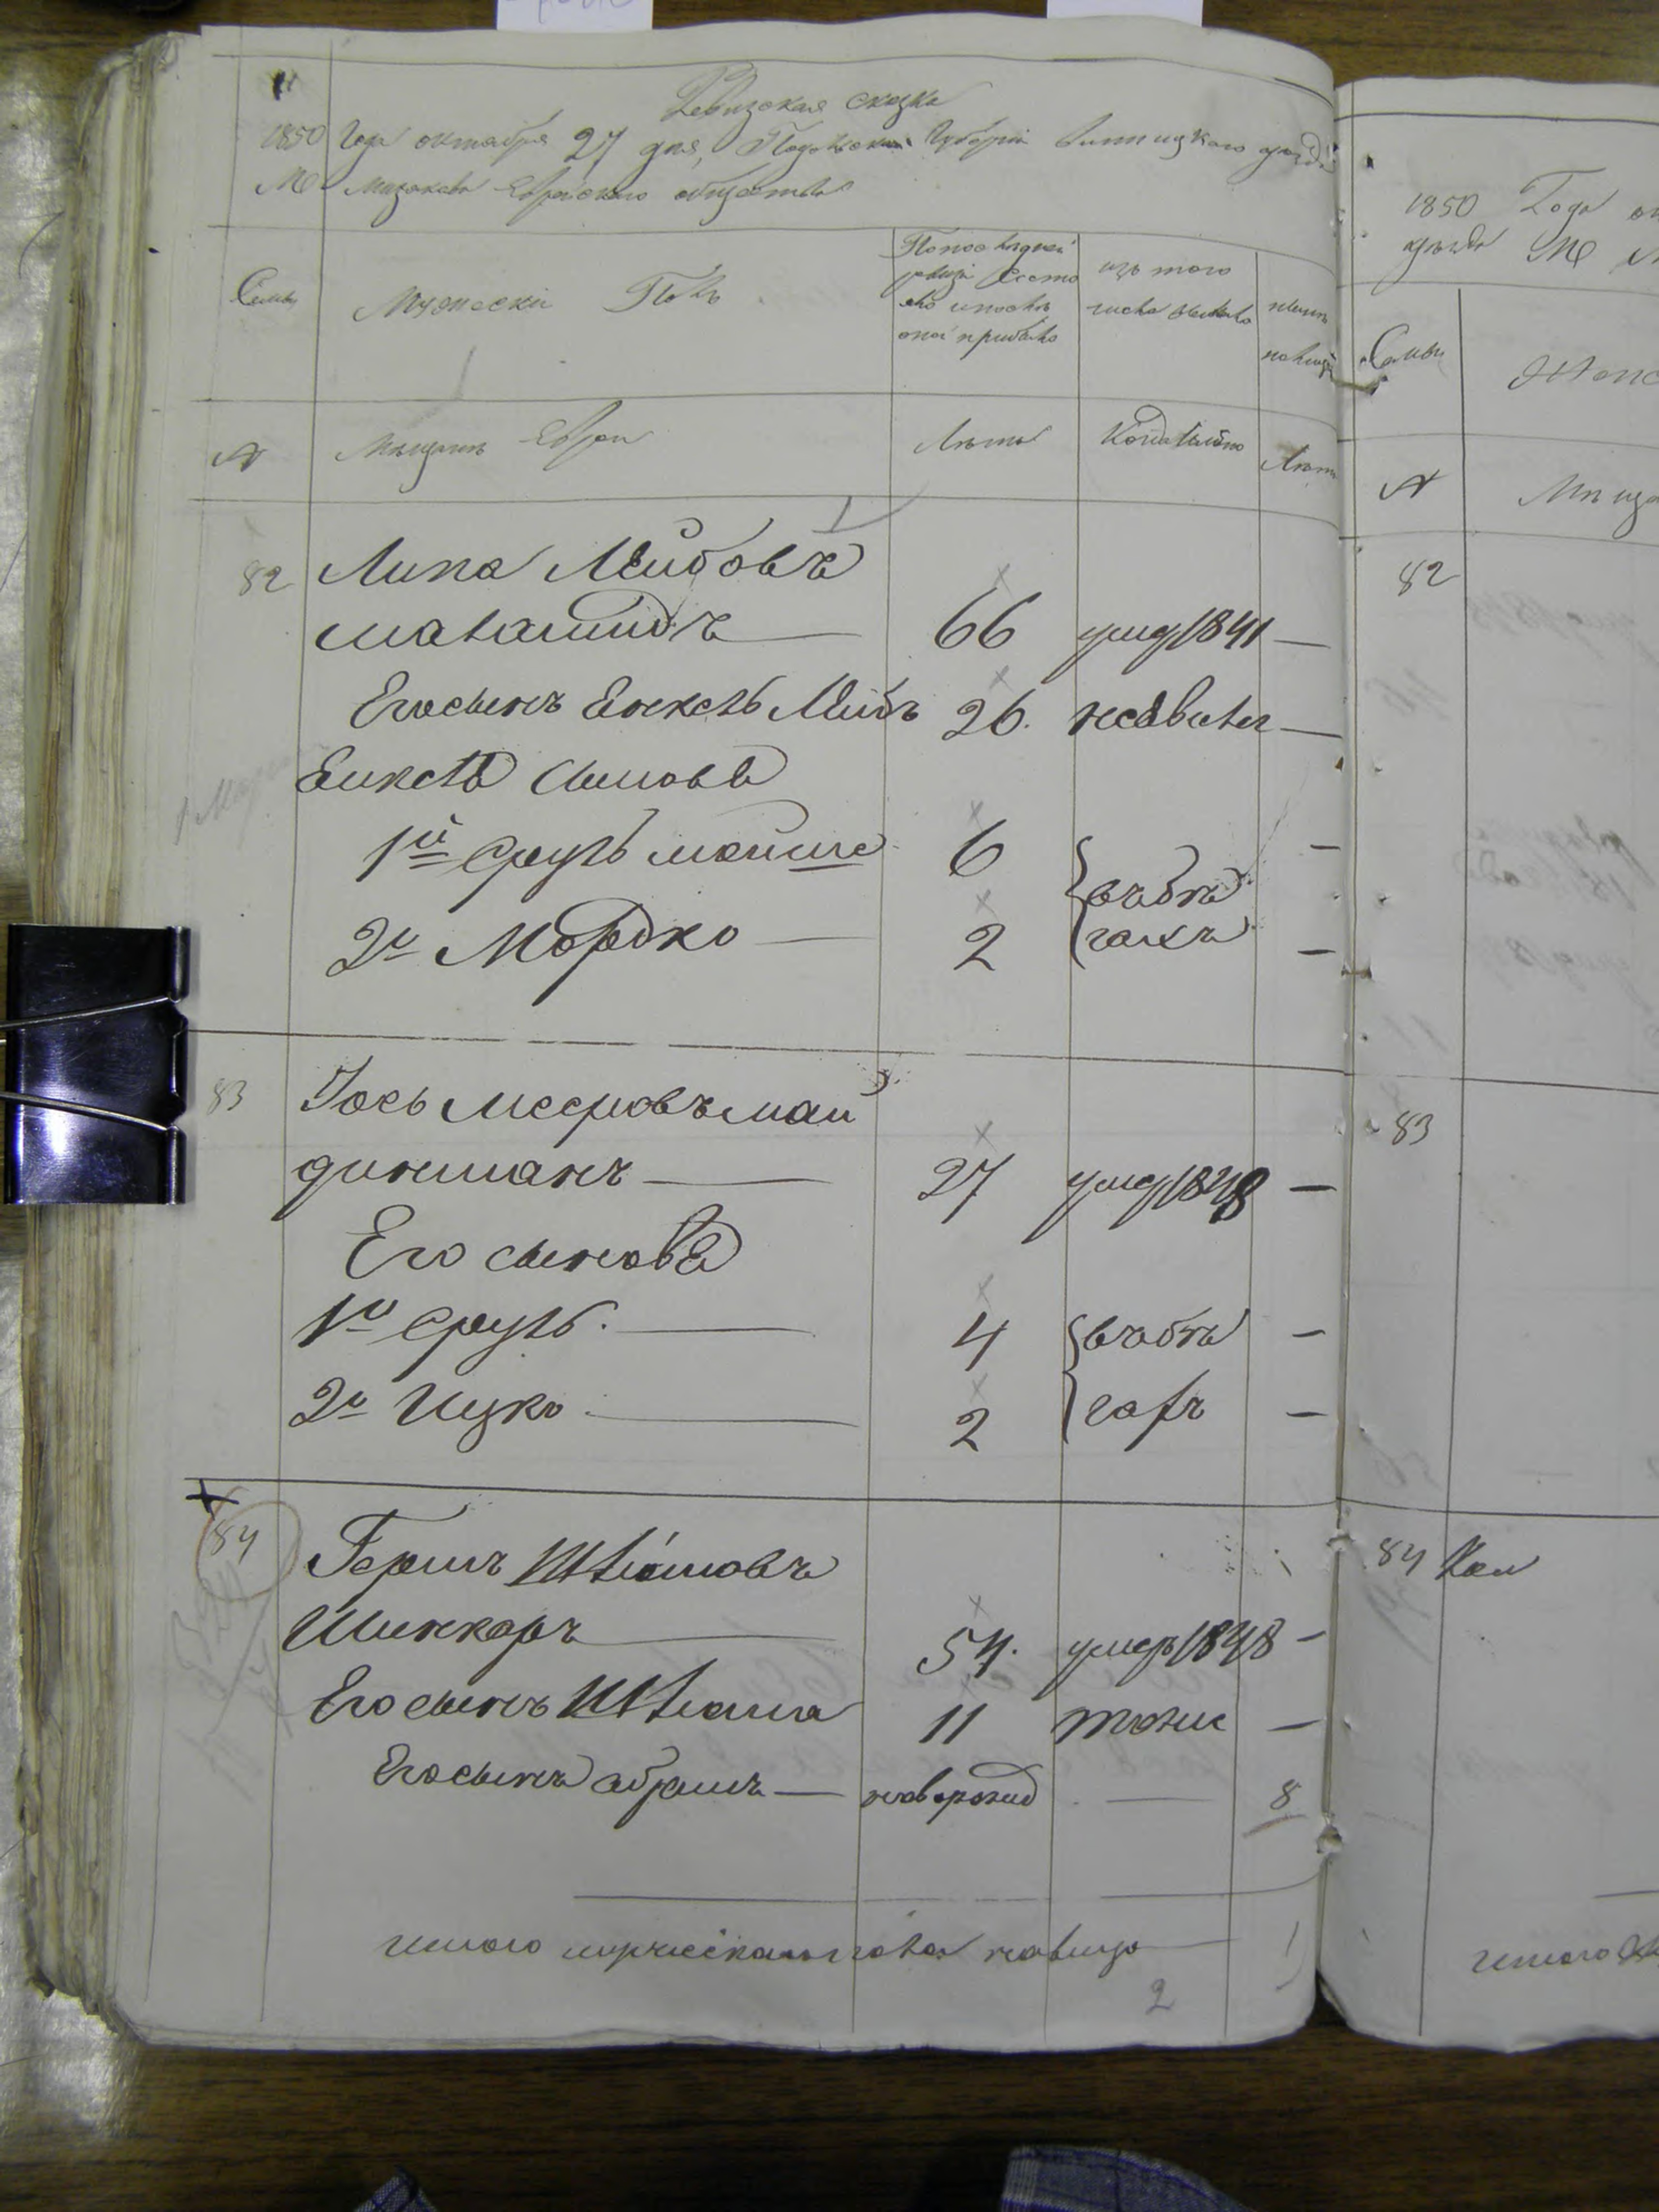 Ревизская сказка
1850 Года октября 27 дня, Подольской Губернии Винницкого уезда
М. Мизякова Еврейского общества
Семьи
Мужеский Полъ
По последней
ревизии состо
яло и после
оной прибыло
изъ того
числа выбыло
ныне
на лицо
№
Мещане Евреи
Лета
Когда именно
Лета
82 Липа Лейбовъ
66 умер 1841 —
Его сынъ Енкель Лейбъ 26. неявился —
Енкеля сыновья
1й Сруль мойше 6 —
въ бѣ
2й Мордко — 2 гахъ —
83 Іось Мееровъ май
динманъ — 27 умер 1848 —
Его сыновья
1й Сруль. — 4 въ бѣ —
2й Ицко — 2 гахъ —
84 Гершъ Шлiомовъ
Шинкаръ — 54. умеръ 1848 —
Его сынъ Шлiома 11 тоже —
Его сынъ абрамъ — новорожд — 8
итого мужескаго пола налицо — 1
2
1850 Года
уезда М
Семьи
№
82
83
84
итого